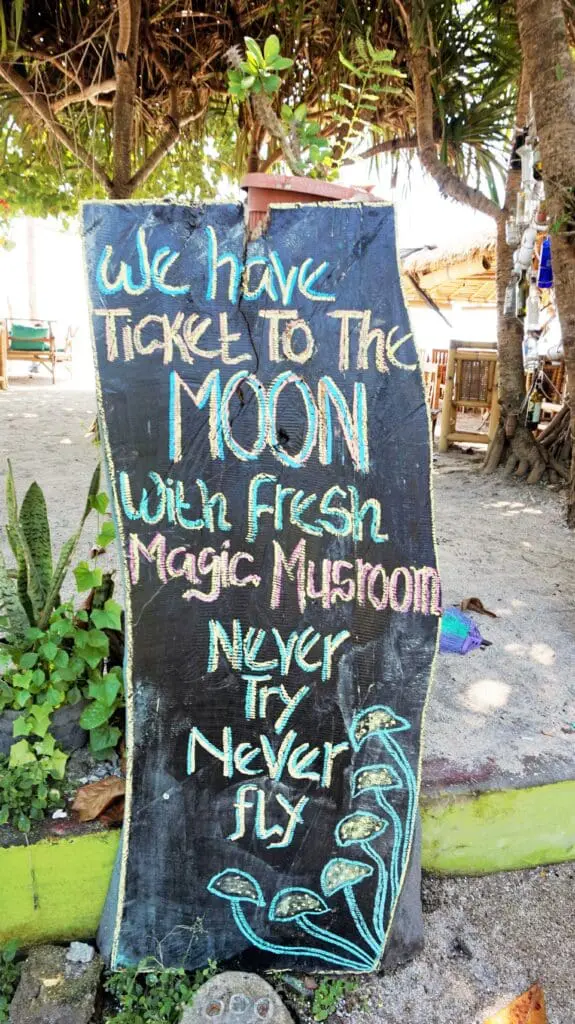 We have
Ticket To The
MOON
with Fresh
Magic Musroom
Never
Try
Never
fly